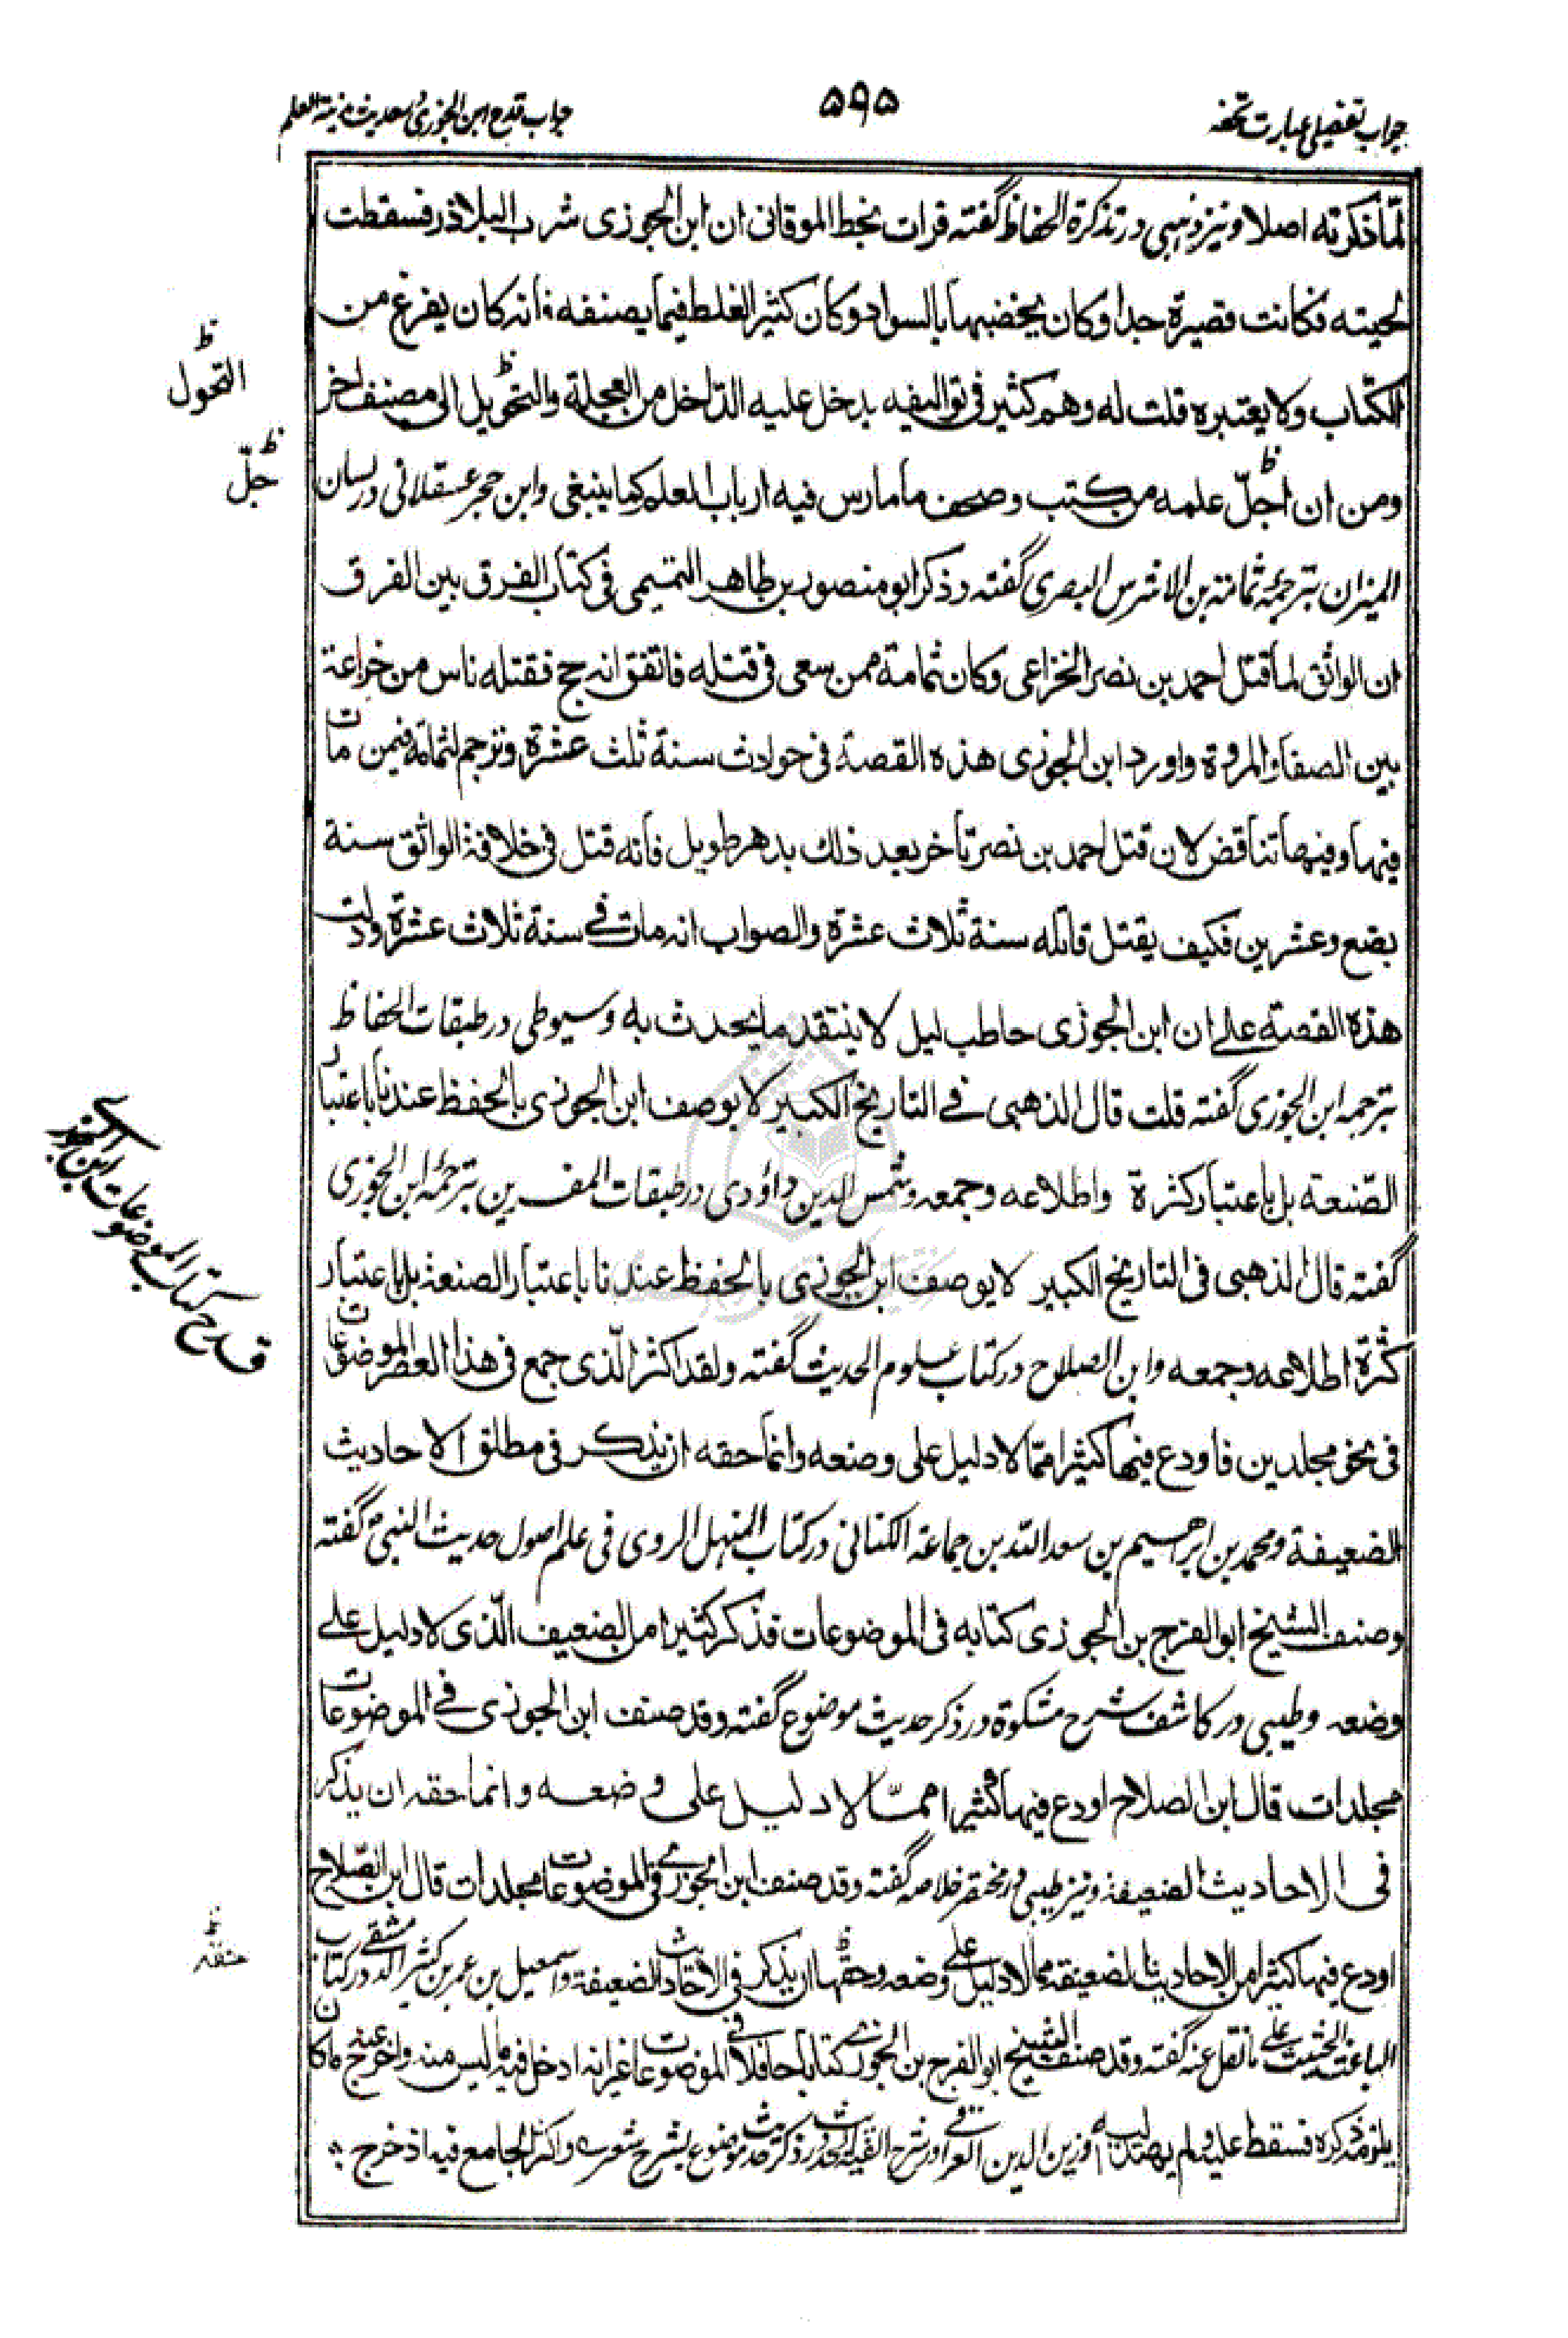 جواب تفصیلی عبارت تحفه
۵۹۵
جواب قدح ابن الجوزی حدیث مدینة العلم
لما ذکرته اصلا و نیز ذهبی در تذکرة الحفاظ گفته قرات بخط الموقانی ان ابن الجوزی شرب البلاذر فسقطت
لحیته فکانت قصیرة جدا وکان یخضبها بالسواد وکان کثیر الغلط فیما یصنفه فانه کان یفرغ من
الکتاب ولا یعتبره قلت له وهم کثیر فی توالیفه یدخل علیه الداخل من العجلة والتحویل الی مصنف اخر
ومن ان اجلّ علمه من کتب وصحف ما مارس فیه ارباب العلم کما ینبغی وابن حجر عسقلانی در لسان
المیزان بترجمهٔ ثمامة بن الاشرس البصری گفته وذکر ابو منصور بن طاهر التمیمی فی کتاب الفرق بین الفرق
ان الواثق لما قتل احمد بن نصر الخزاعی وکان ثمامة ممن سعی فی قتله فاتفق انه حج فقتله ناس من خزاعة
بین الصفا والمروة واورد ابن الجوزی هذه القصة فی حوادث سنة ثلث عشرة وترجم لثمامة فیمن مات
فیها وفیها تناقض لان قتل احمد بن نصر تاخر بعد ذلک بدهر طویل فانه قتل فی خلافة الواثق سنة
بضع وعشرین فکیف یقتل قاتله سنة ثلاث عشرة والصواب انه مات فی سنة ثلاث عشرة ودلت
هذه القصة علی ان ابن الجوزی حاطب لیل لا ینتقد ما یحدث به وسیوطی در طبقات الحفاظ
بترجمه ابن الجوزی گفته قلت قال الذهبی فی التاریخ الکبیر لا یوصف ابن الجوزی بالحفظ عندنا باعتبار
الصّنعة بل باعتبار کثرة واطلاعه وجمعه وشمس الدین داؤدی در طبقات المفسرین بترجمهٔ ابن الجوزی
گفته قال الذهبی فی التاریخ الکبیر لا یوصف ابن الجوزی بالحفظ عندنا باعتبار الصنعة بل باعتبار
کثرة اطلاعه وجمعه وابن الصلاح در کتاب علوم الحدیث گفته ولقد اکثر الّذی جمع فی هذا العصر الموضوعات
فی نحو مجلدین فاودع فیها کثیرا ممّا لا دلیل علی وضعه وانما حقه ان یذکر فی مطلق الاحادیث
الضعیفة ومحمد بن ابراهیم بن سعد الله بن جماعة الکنانی در کتاب المنهل الروی فی علم اصول حدیث النبی ص گفته
وصنف الشیخ ابو الفرج بن الجوزی کتابه فی الموضوعات فذکر کثیرا من الضعیف الّذی لا دلیل علی
وضعه وطیبی در کاشف شرح مشکوة در ذکر حدیث موضوع گفته وقد صنف ابن الجوزی فی الموضوعات
مجلدات قال ابن الصلاح اودع فیها کثیرا ممّا لا دلیل علی وضعه وانما حقه ان یذکر
فی الاحادیث الضعیفة ونیز طیبی در مختصر خلاصه گفته وقد صنف ابن الجوزی فی الموضوعات مجلدات قال ابن الصّلاح
اودع فیها کثیرا من الاحادیث الضعیفة مما لا دلیل علی وضعه وحقّها ان یذکر فی الاحادیث الضعیفة واسمعیل بن عمر بن کثیر الدمشقی در کتاب
الباعث الحثیث علی ما نقل عنه گفته وقد صنف الشیخ ابو الفرج بن الجوزی کتابا حافلا فی الموضوعات غیر انه ادخل فیه ما لیس منه واخرج عنه ما کان
یلزمه ذکره فسقط علیه ولم یهتد الیه وزین الدین العراقی در شرح الفیة الحدیث در ذکر حدیث موضوع بشرح شعر واکثر الجامع فیه اذ خرج
ظ
التحول
ظ
جلّ
قدح کتاب الموضوعات ابن الجوزی
ظ
حقه